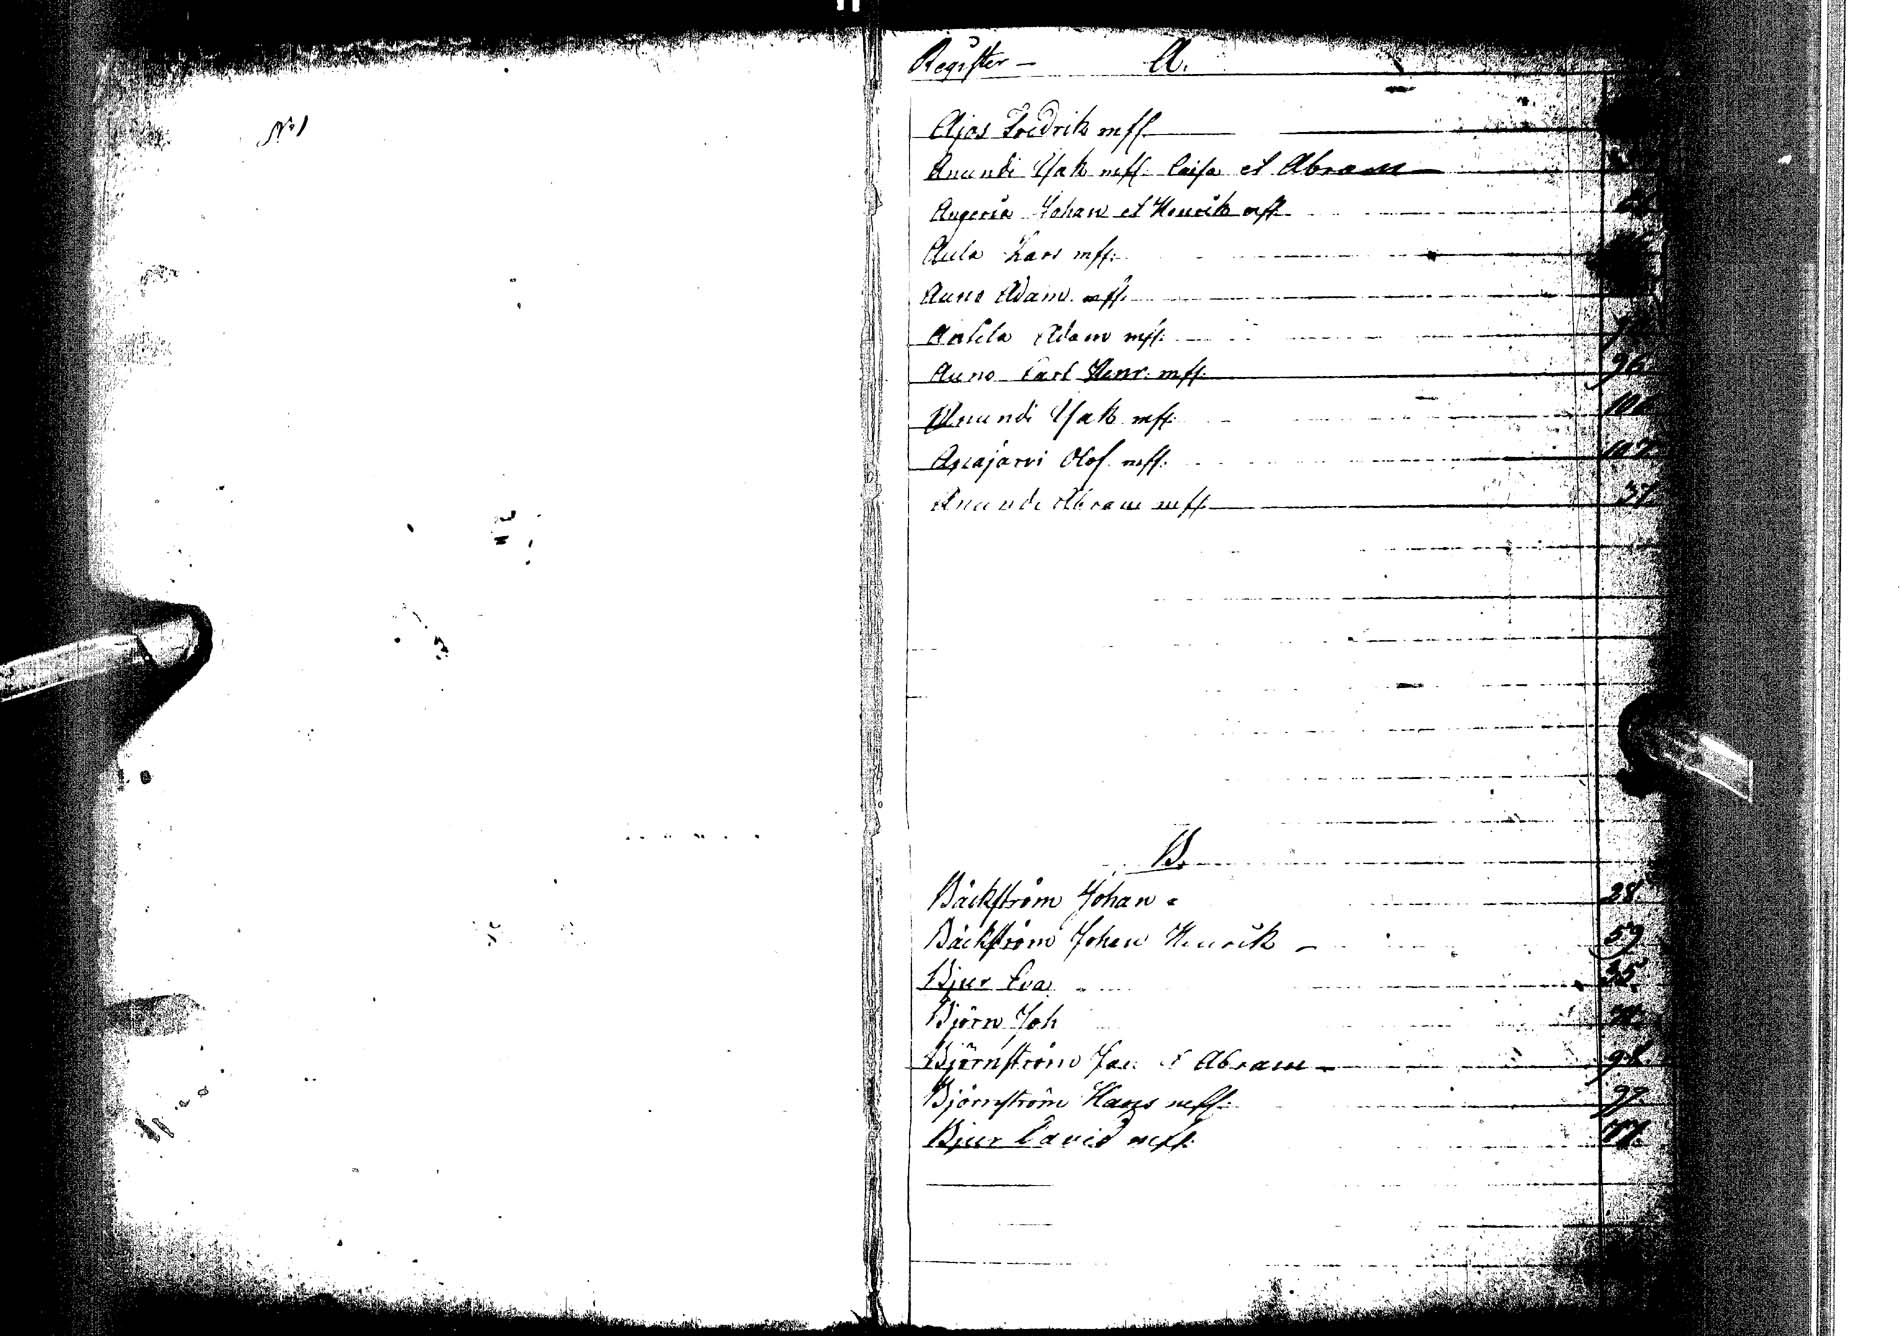 No 1
Register — A.
Ajos Fredrik mfl.
Anundi Isak mfl. Caisa et Abram
Angeria Johan et Henrik mfl.
Aula Lars mfl.
Auno Adam mfl.
Anttila Adam mfl.
Auno Carl Henr. mfl. 96.
Anundi Isak mfl.
Apajärvi Olof mfl. 107
Anundi Abram mfl. 37.
B.
Bäckström Johan 28.
Bäckström Johan Henrik — 59
Bjur Eva 35.
Björn Joh
Björnström Jac. & Abram 98
Björnström Hans mfl. 37.
Bjur David mfl. 77.